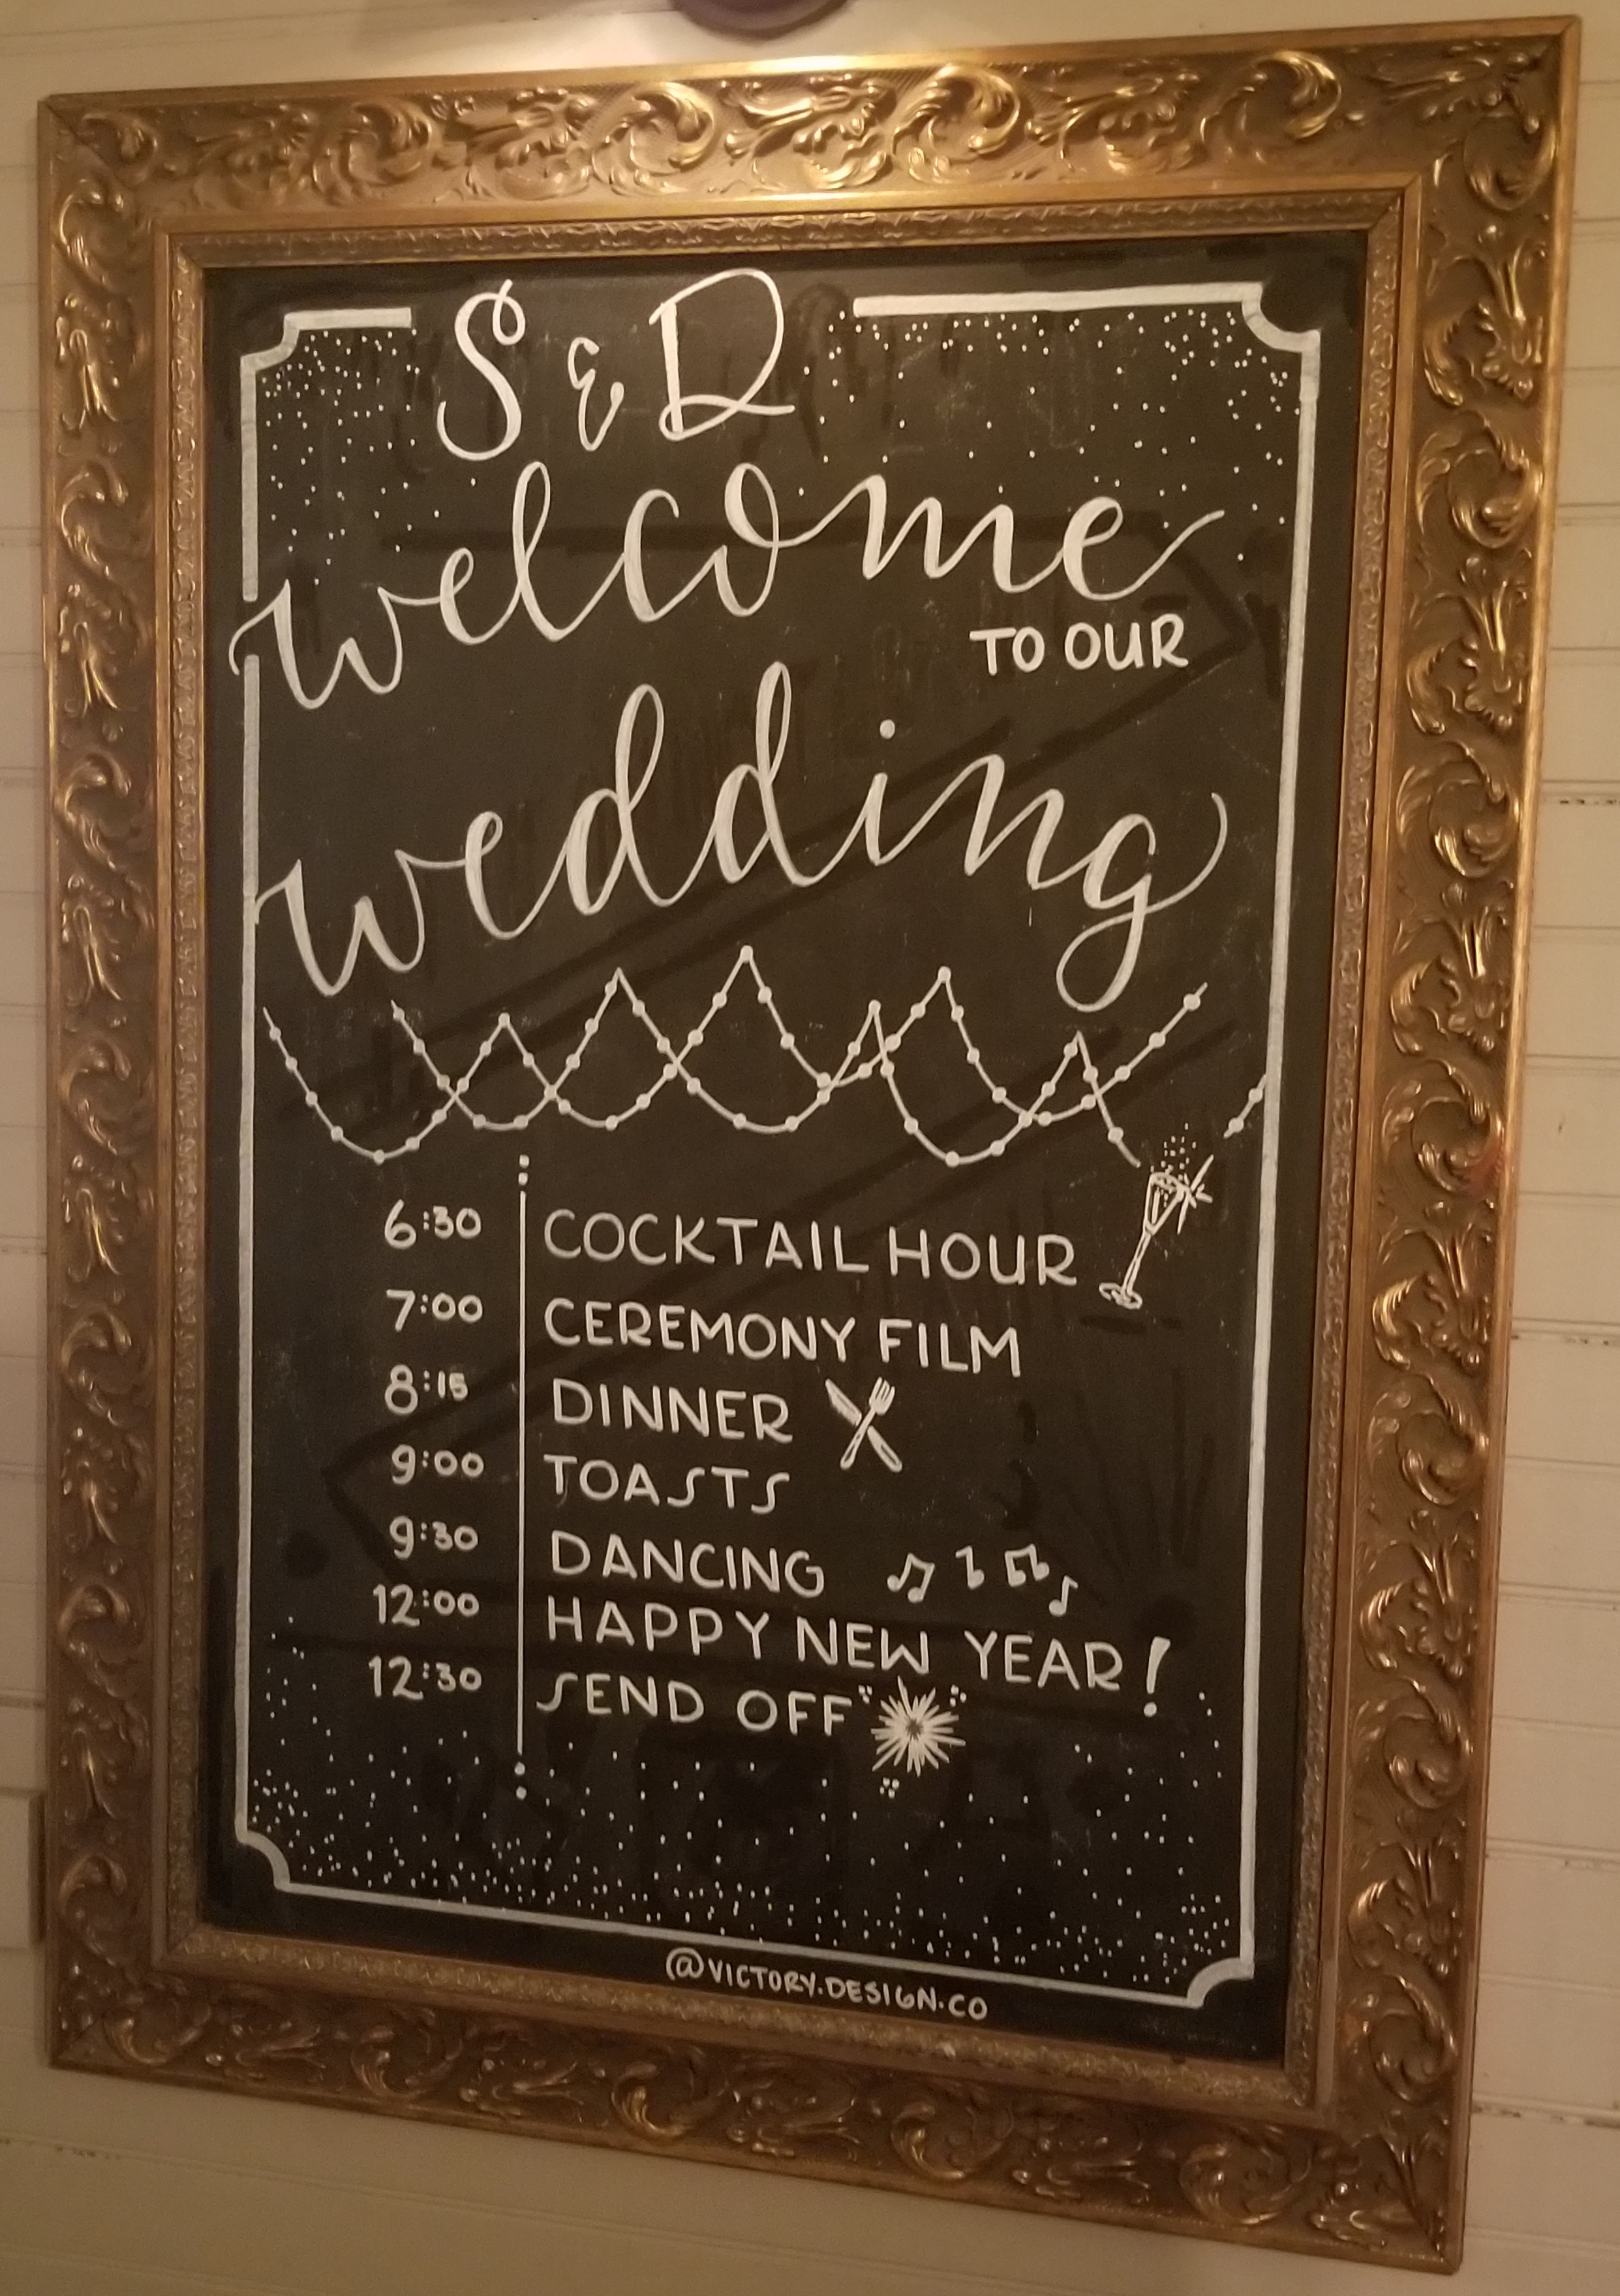 S & D
welcome
TO OUR
wedding
6:30 COCKTAIL HOUR
7:00 CEREMONY FILM
8:15 DINNER
9:00 TOASTS
9:30 DANCING
12:00 HAPPY NEW YEAR!
12:30 SEND OFF
@VICTORY.DESIGN.CO